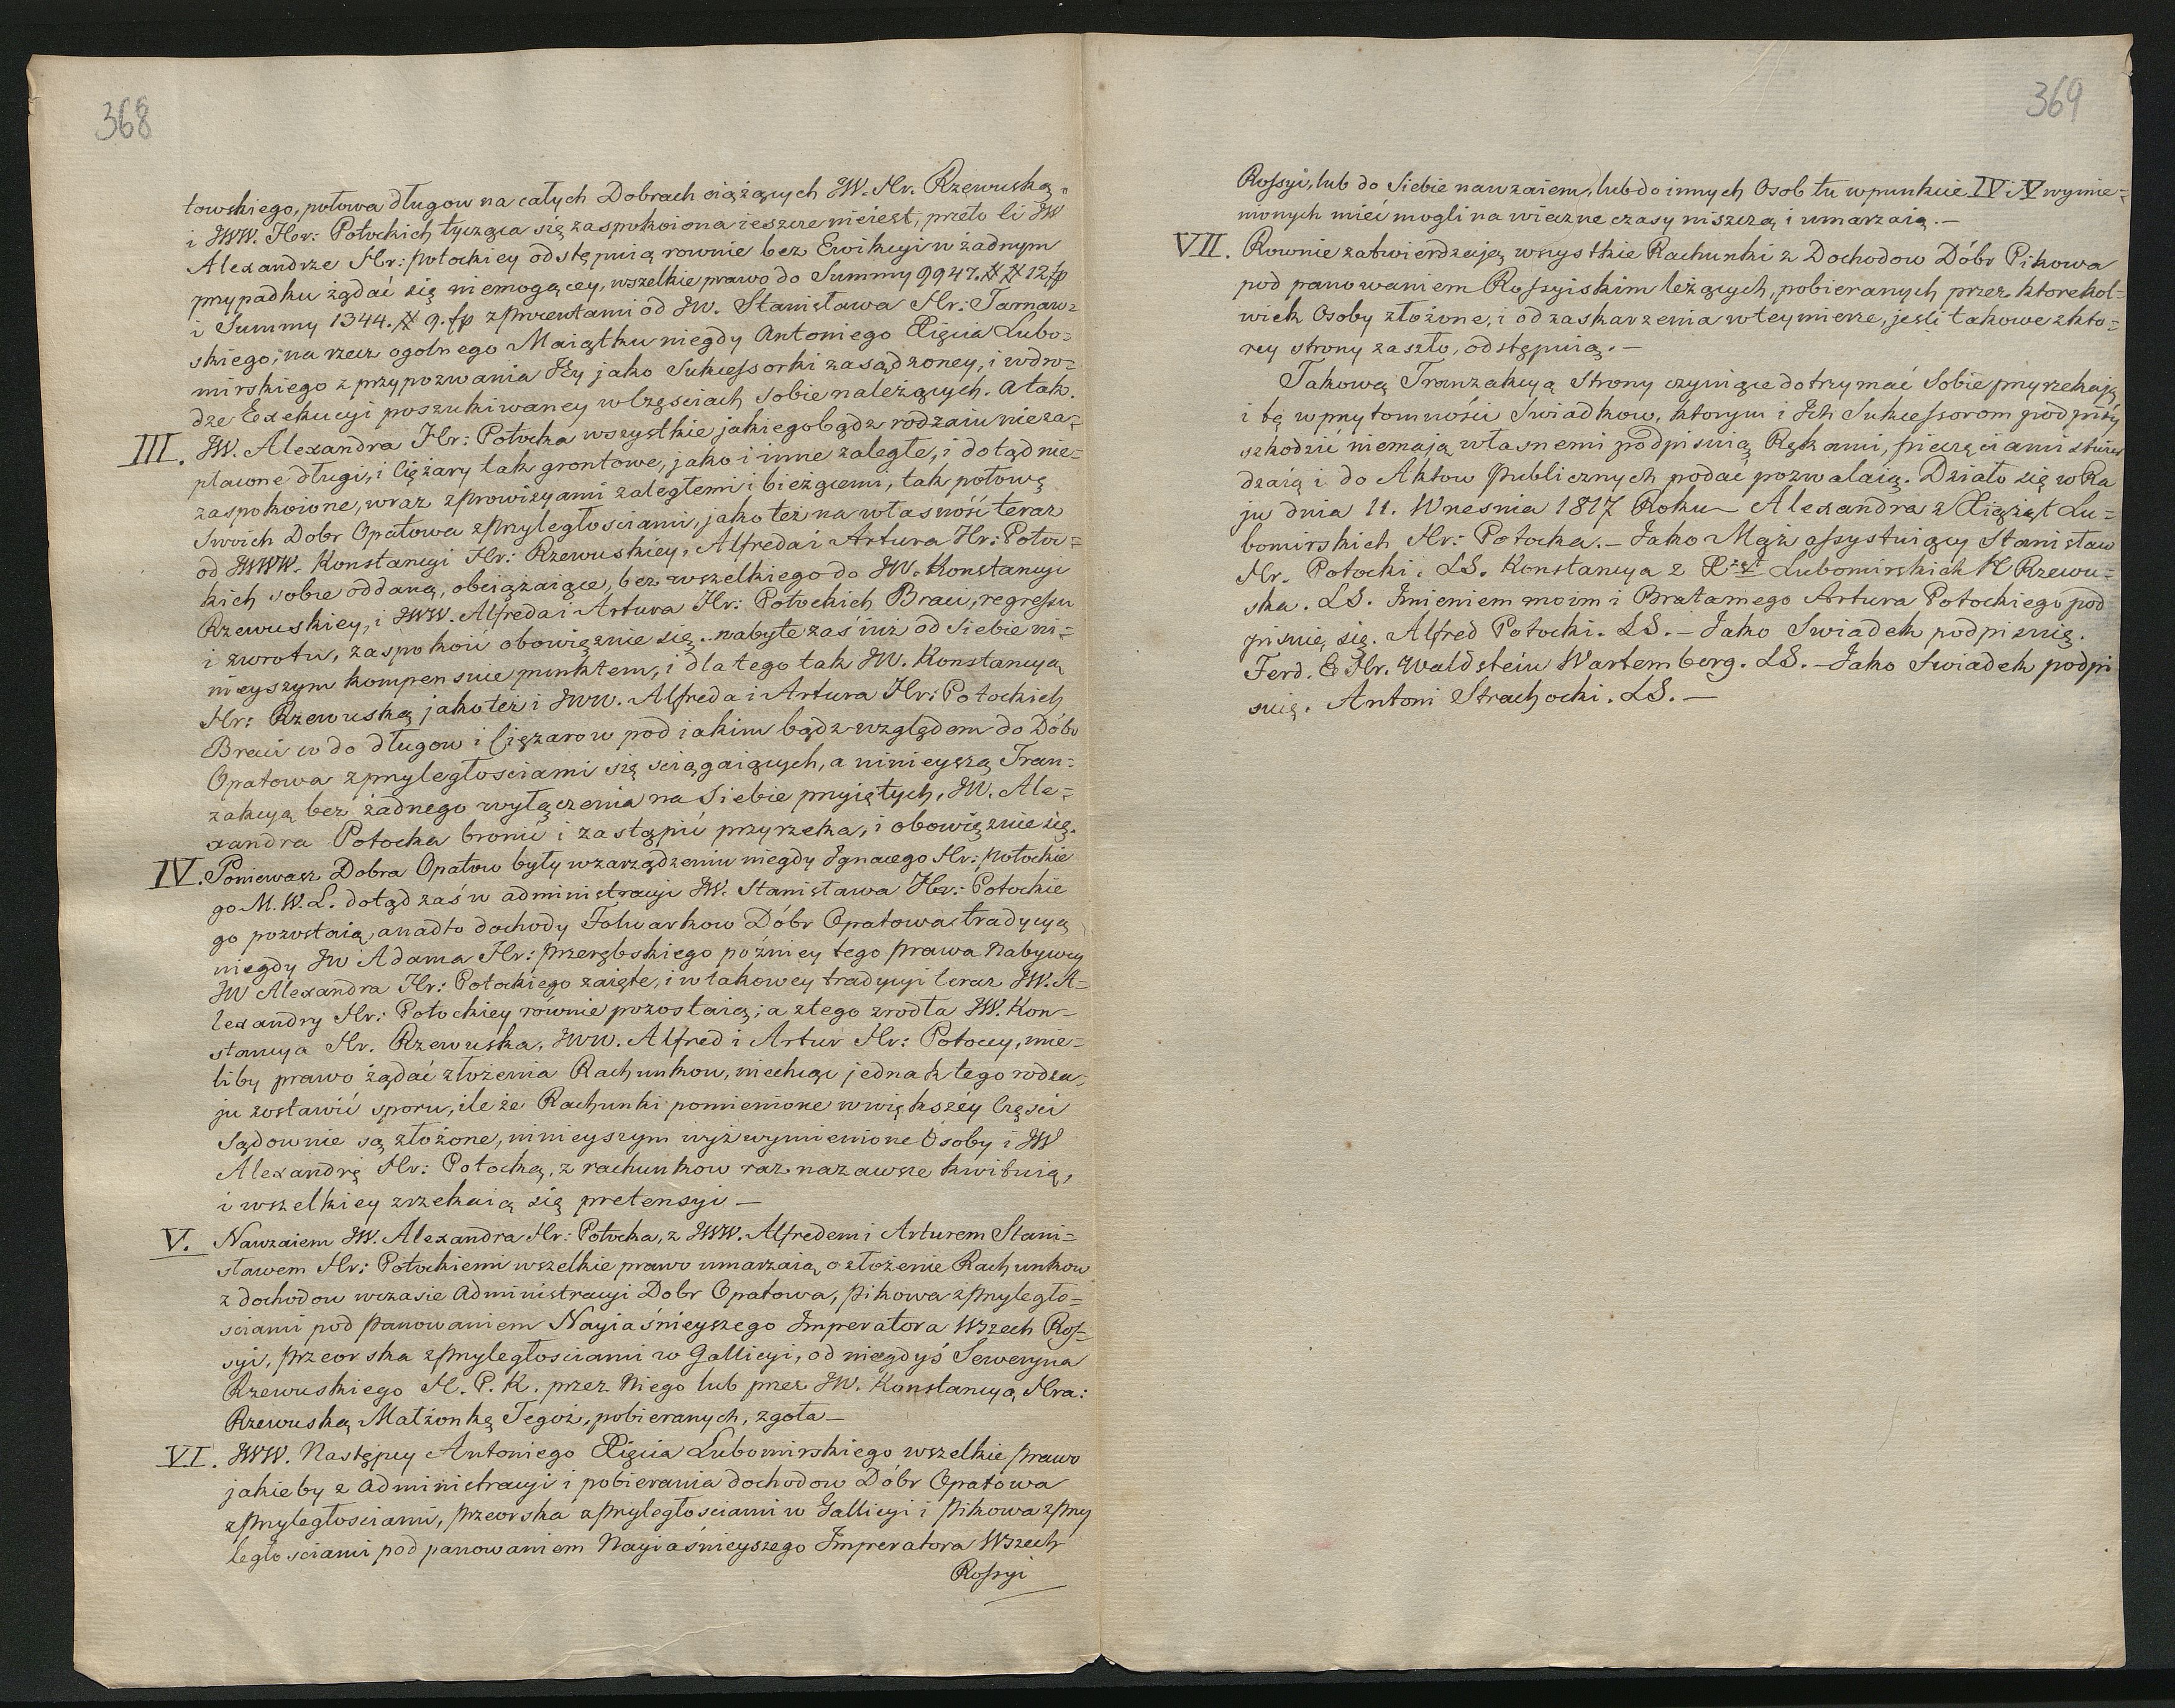 368
towskiego, połowa długow na całych Dobrach ciążących JW. Hr. Rzewuską
i JWW. Hr: Potockich tycząca się zaspokoiona ieszcze nieiest, przeto li JW
Alexandrze Hr: Potockiey odstępuią rownie bez Ewikcyi w żadnym
przypadku żądać się niemogącey, wszelkie prawo do Summy 9947. # # 12 fp
i Summy 1344. # 9. fp z procentami od JW. Stanisława Hr: Tarnaw=
skiego, na rzecz ogolnego Maiątku niegdy Antoniego Xięcia Lubo=
mirskiego z przypozwania Jey jako Sukcessorki zasądzoney, i w dro=
dze Exekucyi poszukiwaney w Częsciach sobie należących. A tak.
III. JW. Alexandra Hr: Potocka wszystkie jakiegobądz rodzaiu nieza=
płacone długi, i Ciężary tak grontowe, jako i inne zaległe, i dotąd nie=
zaspokoione, wraz z prowizyami zaległemi i bieżącemi, tak połowę
Swoich Dobr Opatowa z Przyległosciami, jako też na własność teraz
od JWW. Konstancyi Hr: Rzewuskiey, Alfreda i Artura Hr: Potoc=
kich sobie oddaną, obciążaiące, bez wszelkiego do JW. Konstancyi
Rzewuskiey, i JWW. Alfreda i Artura Hr: Potockich Braci, regressu
i zwrotu, zaspokoić obowięznie się. nabyte zaś iuż od Siebie ni=
nieyszym kompensuie punktem, i dla tego tak JW. Konstancyą
Hr: Rzewuską jako też i JWW. Alfreda i Artura Hr: Potockich
Braci w do długow i Ciężarow pod iakim bądz względem do Dóbr
Opatowa z przyległosciami się sciągaiących, a ninieyszą Tran=
zakcyą bez żadnego wyłączenia na Siebie przyiętych, JW. Ale=
xandra Potocka bronić i zastąpić przyrzeka, i obowięznie się.
IV. Poniewasz Dobra Opatow były w zarządzeniu niegdy Ignacego Hr: Potockie
go M. W. L. dotąd zaś w administracyi JW. Stanisława Hr: Potockie
go pozostaią, a nadto dochody Folwarkow Dóbr Opatowa tradycyą
niegdy JW Adama Hr: Przerębskiego pożniey tego prawa Nabywcy
JW Alexandra Hr: Potockiego zaięte, i w takowey tradycyi teraz JW. A=
lexandry Hr: Potockiey równie pozostaią; a ztego zrodła JW. Kon=
stancya Hr. Rzewuska, JWW. Alfred i Artur Hr: Potoccy, mie=
liby prawo żądać złożenia Rachunkow, niechcąc jednak tego rodza=
ju zostawić sporu, ile że Rachunki pomienione w większéy Części
Sądownie są złożone, ninieyszym wyż wymienione Osoby i JW
Alexandrę Hr: Potocką, z rachunkow raz na zawsze kwituią,
i wszelkiey zrzekaią się pretensyi —
V. Nawzaiem JW. Alexandra Hr: Potocka, z JWW. Alfredem i Arturem Stani=
sławem Hr: Potockiemi wszelkie prawo umarzaią o złożenie Rachunkow
z dochodow wczasie Administracyi Dobr Opatowa, Pikowa z Przyległo=
sciami pod Panowaniem Nayiaśnieyszego Imperatora Wszech Ros=
syi, Przeorska z Przyległosciami w Gallicyi, od niegdyś Seweryna
Rzewuskiego H. P. K. przez Niego lub przez JW. Konstancyą Hra:
Rzewuską Małżonkę Tegoż, pobieranych, zgoła —
VI. JWW. Następcy Antoniego Xięcia Lubomirskiego wszelkie prawo
jakieby z Administracyi i pobierania dochodow Dóbr Opatowa
z Przyległosciami, Przeorska z Przyległosciami w Gallicyi i Pikowa z Przy
ległosciami pod panowaniem Nayiaśnieyszego Imperatora Wszech
Rossyi
369
Rossyi, lub do Siebie nawzaiem, lub do innych Osob tu w punkcie IV i V wymie=
nionych mieć mogli na wieczne czasy niszczą i umarzaią. —
VII. Rownie zatwierdzają wszystkie Rachunki z Dochodow Dóbr Pikowa
pod panowaniem Rossyiskim leżących, pobieranych przez ktorekol=
wiek Osoby złożone, i od zaskarzenia w tey mierze, jeśli takowe z kto=
rey strony zaszło, odstępuią. —
Takową Tranzakcyą Strony czyniące dotrzymać Sobie przyrzekają,
i tę w przytomności Świadkow, ktorym i Ich Sukcessorom podpisy
szkodzić niemają własnemi podpisuią Rękami, pieczęciami stwier
dzaią i do Aktow Publicznych podać pozwalaią. Działo się w Ra
ju dnia 11. Wresnia 1817 Roku — Alexandra z Xiążąt Lu=
bomirskich Hr: Potocka. — Jako Mąż assystuiący Stanisław
Hr. Potocki. LS. Konstancya z X-ąt Lubomirskich H Rzewu=
ska. LS. Imieniem moim i Brata mego Artura Potockiego pod
pisuię się. Alfred Potocki. LS. — Jako Swiadek podpisuię.
Ferd. E Hr. Waldstein Wartemberg. LS. — Jako Swiadek podpi
suię. Antoni Strachocki. LS. —